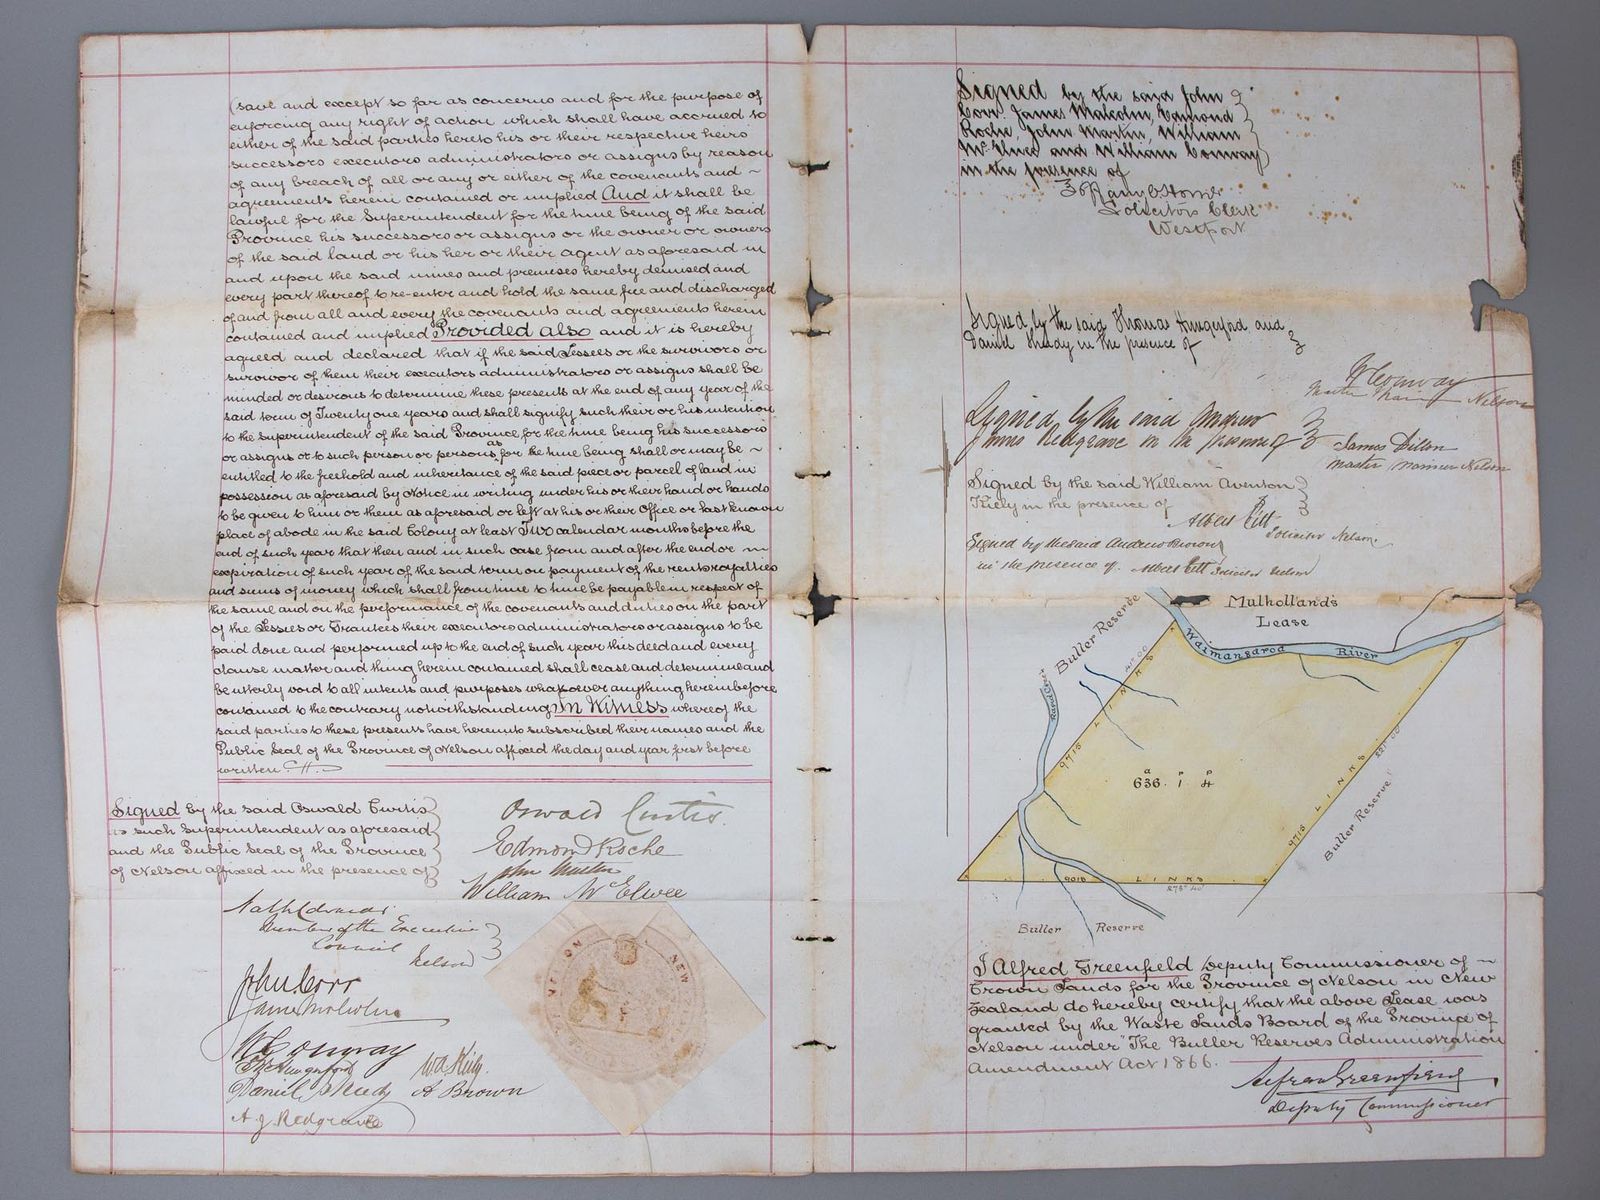 (save and except so far as concerns and for the purpose of
enforcing any right of action which shall have accrued to
either of the said parties hereto his or their respective heirs
successors executors administrators or assigns by reason
of any breach of all or any or either of the covenants and ~
agreements herein contained or implied And it shall be
lawful for the Superintendent for the time being of the said
Province his successors or assigns or the owner or owners
of the said land or his her or their agent as aforesaid in
and upon the said mines and premises hereby demised and
every part thereof to re-enter and hold the same free and discharged
of and from all and every the covenants and agreements herein
contained and implied Provided also and it is hereby
agreed and declared that if the said Lessees or the survivors or
survivor of them their executors administrators or assigns shall be
minded or desirous to determine these presents at the end of any year of the
said term of Twenty one years and shall signify such their or his intention
to the Superintendent of the said Province for the time being his successors
or assigns or to such person or persons as for the time being shall or may be ~
entitled to the freehold and inheritance of the said piece or parcel of land in
possession as aforesaid by Notice in writing under his or their hand or hands
to be given to him or them as aforesaid or left at his or their Office or last known
place of abode in the said Colony at least Two calendar months before the
end of such year that then and in such case from and after the end or ~
expiration of such year of the said term on payment of the rents royalties
and sums of money which shall from time to time be payable in respect of
the same and on the performance of the covenants and duties on the part
of the Lessees or Grantees their executors administrators or assigns to be
paid done and performed up to the end of such year this deed and every
clause matter and thing herein contained shall cease and determine and
be utterly void to all intents and purposes whatsoever anything herein before
contained to the contrary notwithstanding In Witness whereof the
said parties to these presents have hereunto subscribed their names and the
Public Seal of the Province of Nelson affixed the day and year first before
written.
Signed by the said Oswald Curtis
as such Superintendent as aforesaid
and the Public Seal of the Province
of Nelson affixed in the presence of
Oswald Curtis.
Edmond Roche
John Martin
William McElwee
Nath Edwards
Member of the Executive
Council
Nelson
John Corr
James Malcolm
W Conway
Hungerford
Wa Kiely.
Daniel Sheedy
A Brown
A J Redgrave
NEW
Signed by the said John
Corr. James Malcolm, Edmond
Roche, John Martin, William
McElwee and William Conway
in the presence of
Solicitors Clerk
Westport
Signed by the said Thomas Hungerford and
Daniel Sheedy in the presence of
W Conway
Master Nelson
Signed by the said Andrew
James Redgrave in the presence of
James Dillon
Master Mariner Nelson
Signed by the said William Aventon
Kiely in the presence of
Albert Pitt
Solicitor Nelson.
Signed by the said Andrew Brown
in the presence of. Albert Pitt Solicitor Nelson
Mulholland's
Lease
Buller Reserve
Waimangaroa River
40° 00
9715 LINKS
636. 1. 4
a r p
9715 LINKS
221° 00
Buller Reserve
9015 LINKS
273° 40'
Buller Reserve
I Alfred Greenfield Deputy Commissioner of ~
Crown Lands for the Province of Nelson in New
Zealand do hereby certify that the above Lease was
granted by the Waste Lands Board of the Province of
Nelson under "The Buller Reserves Administration
Amendment Act 1866.
Alfred Greenfield
Deputy Commissioner